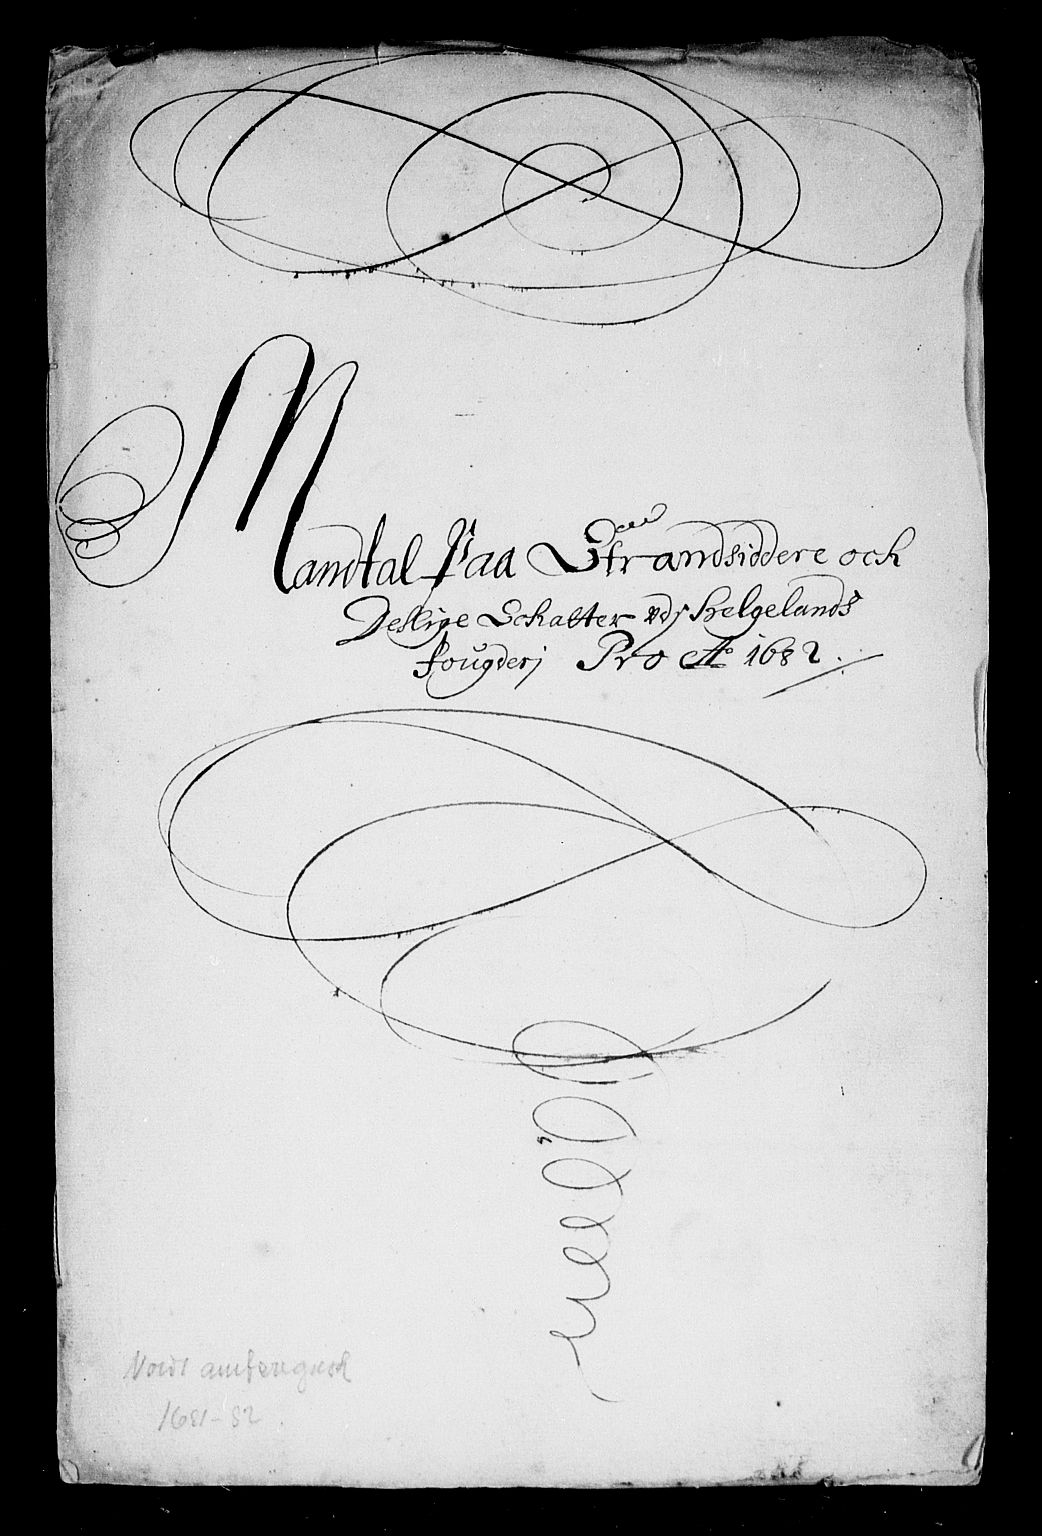 Mandtal Paa Strandsiddere och
Deslige Schatter udj Helgelands
fougderj Pro Ao 1682.
1681-82